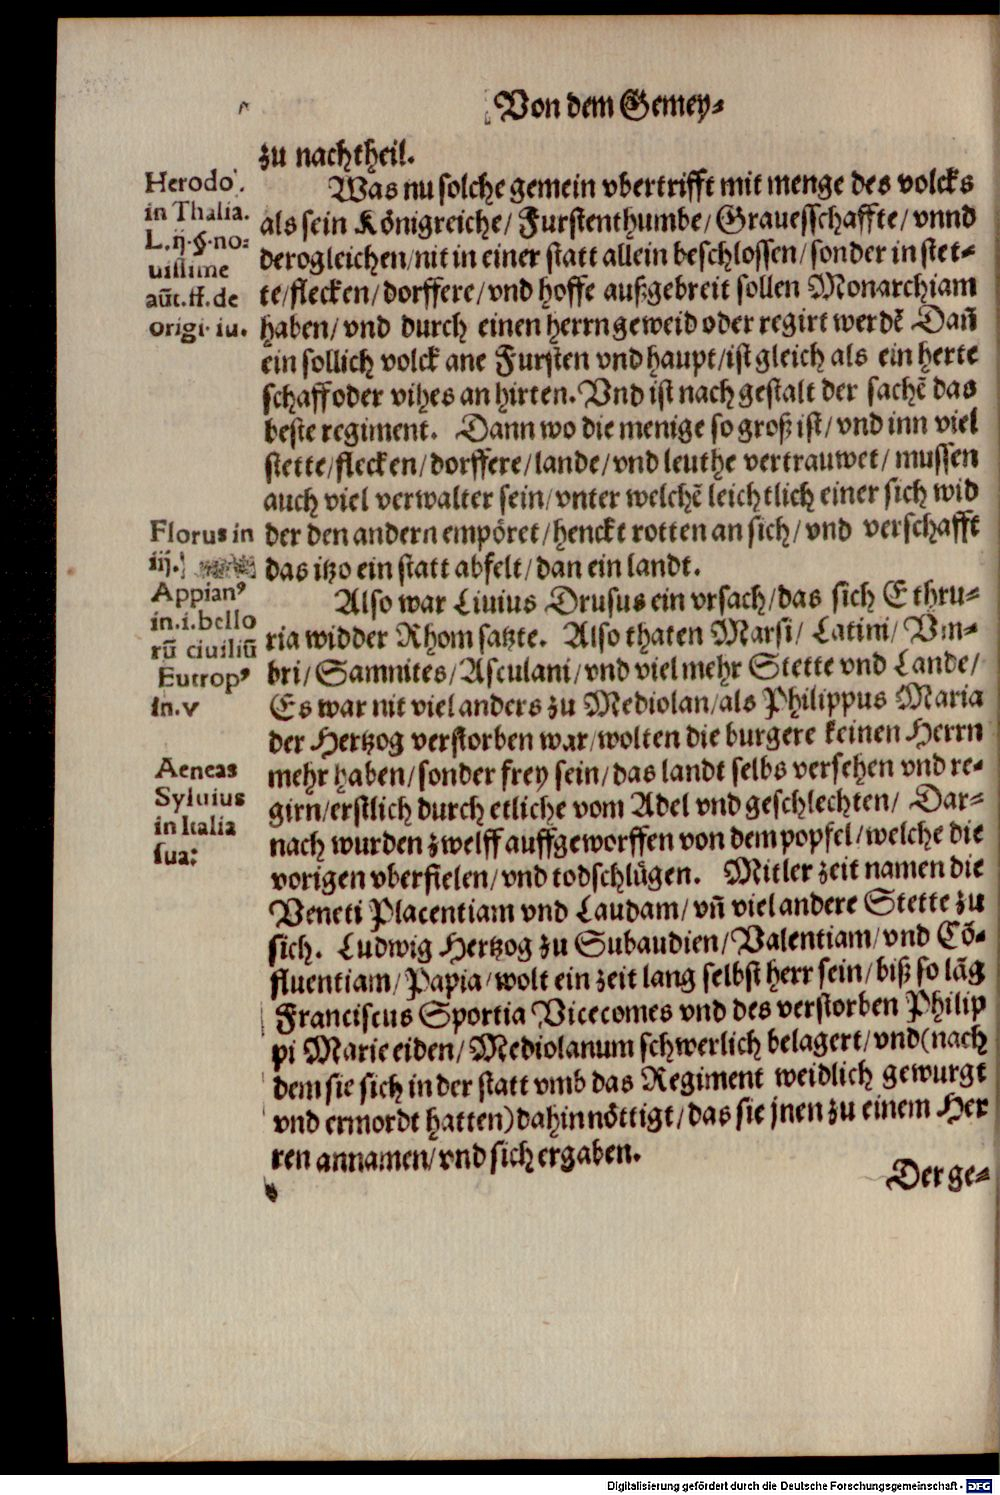 Von dem Gemey-
zu nachtheil.
Was nu solche gemein vbertrifft mit menge des volcks
als sein Königreiche/ Furstenthumbe/ Grauesschaffte/ vnnd
derogleichen/ nit in einer statt allein beschlossen/ sonder in stet-
te/ flecken/ dorffere/ vnd hoffe außgebreit sollen Monarchiam
haben/ vnd durch einen herrn geweid oder regirt werdē Dañ
ein sollich volck ane Fursten vnd haupt/ ist gleich als ein herte
schaff oder vihes an hirten. Vnd ist nach gestalt der sachē das
beste regiment. Dann wo die menige so groß ist/ vnd inn viel
stette/ flecken/ dorffere/ lande/ vnd leuthe vertrauwet/ mussen
auch viel verwalter sein/ vnter welchē leichtlich einer sich wid
der den andern empöret/ henckt rotten an sich/ vnd verschafft
das itzo ein statt abfelt/ dan ein landt.
Also war Liuius Drusus ein vrsach/ das sich Ethru-
ria widder Rhom satzte. Also thaten Marsi/ Latini/ Vm-
bri/ Samnites/ Asculani/ vnd viel mehr Stette vnd Lande/
Es war nit viel anders zu Mediolan/ als Philippus Maria
der Hertzog verstorben war/ wolten die burgere keinen Herrn
mehr haben/ sonder frey sein/ das landt selbs versehen vnd re-
girn/ erstlich durch etliche vom Adel vnd geschlechten/ Dar-
nach wurden zwelff auffgeworffen von dem popfel/ welche die
vorigen vberfielen/ vnd todschlügen. Mitler zeit namen die
Veneti Placentiam vnd Laudam/ vñ viel andere Stette zu
sich. Ludwig Hertzog zu Subaudien/ Valentiam/ vnd Cō-
fluentiam/ Papia/ wolt ein zeit lang selbst herr sein/ biß so lāg
Franciscus Sportia Vicecomes vnd des verstorben Philip
pi Marie eiden/ Mediolanum schwerlich belagert/ vnd (nach
dem sie sich in der statt vmb das Regiment weidlich gewurgt
vnd ermordt hatten) dahin nöttigt/ das sie jnen zu einem Her
ren annamen/ vnd sich ergaben.
Der ge-
Herodo.
in Thalia.
L.ij.§.no:
uissime
aūt.ff.de
origi. iu.
Florus in
iij.
Appian⁹
in.i.bello
rū ciuiliū
Eutrop⁹
in.v
Aeneas
Syluius
in Italia
sua:
Digitalisierung gefördert durch die Deutsche Forschungsgemeinschaft - DFG